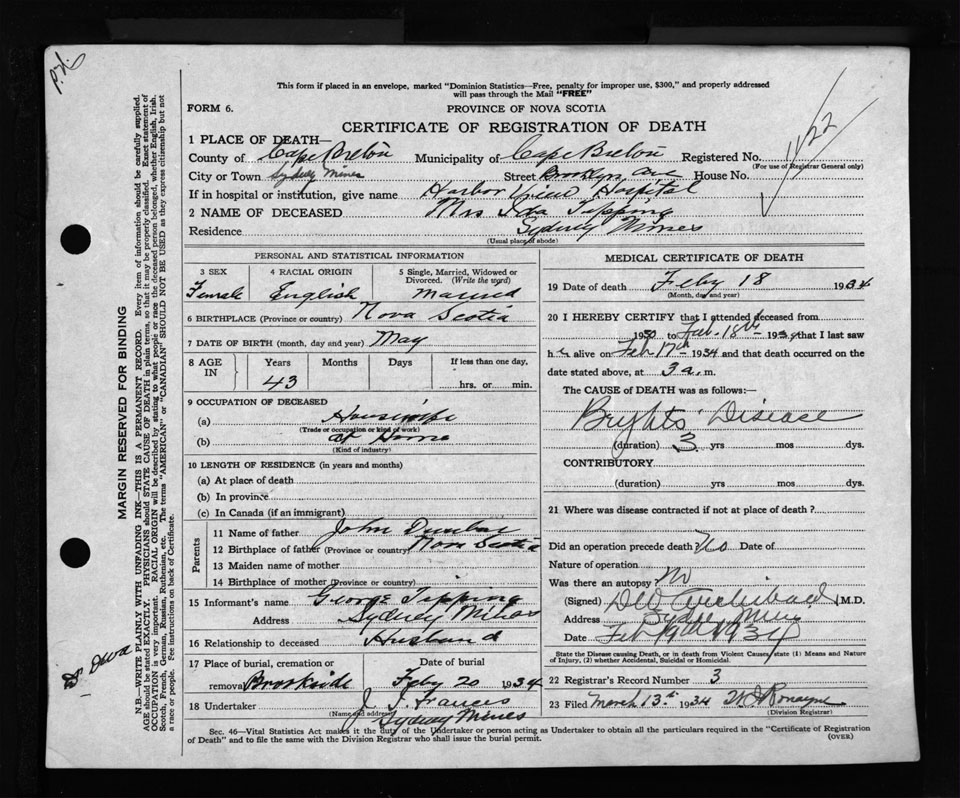 P.N.
This form if placed in an envelope, marked "Dominion Statistics—Free, penalty for improper use, $300," and properly addressed
will pass through the Mail "FREE"
FORM 6.
PROVINCE OF NOVA SCOTIA
CERTIFICATE OF REGISTRATION OF DEATH
11/22
1 PLACE OF DEATH—
County of Cape Breton Municipality of Cape Breton Registered No.
(For use of Registrar General only)
City or Town Sydney Mines Street Brooklyn Ave House No.
If in hospital or institution, give name Harbor View Hospital
2 NAME OF DECEASED Mrs Tipping
Residence Sydney Mines
(Usual place of abode)
PERSONAL AND STATISTICAL INFORMATION
3 SEX 4 RACIAL ORIGIN 5 Single, Married, Widowed or
Divorced. (Write the word)
Female English Married
6 BIRTHPLACE (Province or country) Nova Scotia
7 DATE OF BIRTH (month, day and year) May
8 AGE IN Years Months Days If less than one day,
43 hrs. or min.
9 OCCUPATION OF DECEASED
(a) Housewife
(Trade or occupation or kind of work)
(b) at Home
(Kind of industry)
10 LENGTH OF RESIDENCE (in years and months)
(a) At place of death
(b) In province
(c) In Canada (if an immigrant)
Parents
11 Name of father John Dunbar
12 Birthplace of father (Province or country) Nova Scotia
13 Maiden name of mother
14 Birthplace of mother (Province or country)
15 Informant's name George Tipping
Address Sydney Mines
16 Relationship to deceased Husband
17 Place of burial, cremation or Date of burial
removal Brookside Feby 20 1934
18 Undertaker J. J. Francis
(Name and address) Sydney Mines
MEDICAL CERTIFICATE OF DEATH
19 Date of death Feby 18 1934
(Month, day and year)
20 I HEREBY CERTIFY that I attended deceased from
1930 to Feb. 18th 1934 that I last saw
her alive on Feb 17th 1934 and that death occurred on the
date stated above, at 3 a. m.
The CAUSE OF DEATH was as follows:—
Brights Disease
(duration) 3 yrs mos dys.
CONTRIBUTORY
(duration) yrs mos dys.
21 Where was disease contracted if not at place of death?
Did an operation precede death? No Date of
Nature of operation
Was there an autopsy? No
(Signed) Archibald M.D.
Address Sydney Mines
Date Feb 19th 1934
State the Disease causing Death, or in death from Violent Causes, state (1) Means and Nature
of Injury, (2) whether Accidental, Suicidal or Homicidal.
22 Registrar's Record Number 3
23 Filed March 13th 1934
(Division Registrar)
Sec. 46—Vital Statistics Act makes it the duty of the Undertaker or person acting as Undertaker to obtain all the particulars required in the "Certificate of Registration
of Death" and to file the same with the Division Registrar who shall issue the burial permit.
(OVER)
MARGIN RESERVED FOR BINDING
N.B.—WRITE PLAINLY WITH UNFADING INK—THIS IS A PERMANENT RECORD. Every item of information should be carefully supplied.
AGE should be stated EXACTLY. PHYSICIANS should STATE CAUSE OF DEATH in plain terms, so that it may be properly classified. Exact statement of
OCCUPATION is very important. RACIAL ORIGIN will be described by stating to what people or race the deceased person belonged, whether English, Irish,
Scotch, French, German, Russian, Ruthenian, etc. The terms "AMERICAN" or "CANADIAN" SHOULD NOT BE USED as they express citizenship but not
a race or people. Fee instructions on back of Certificate.